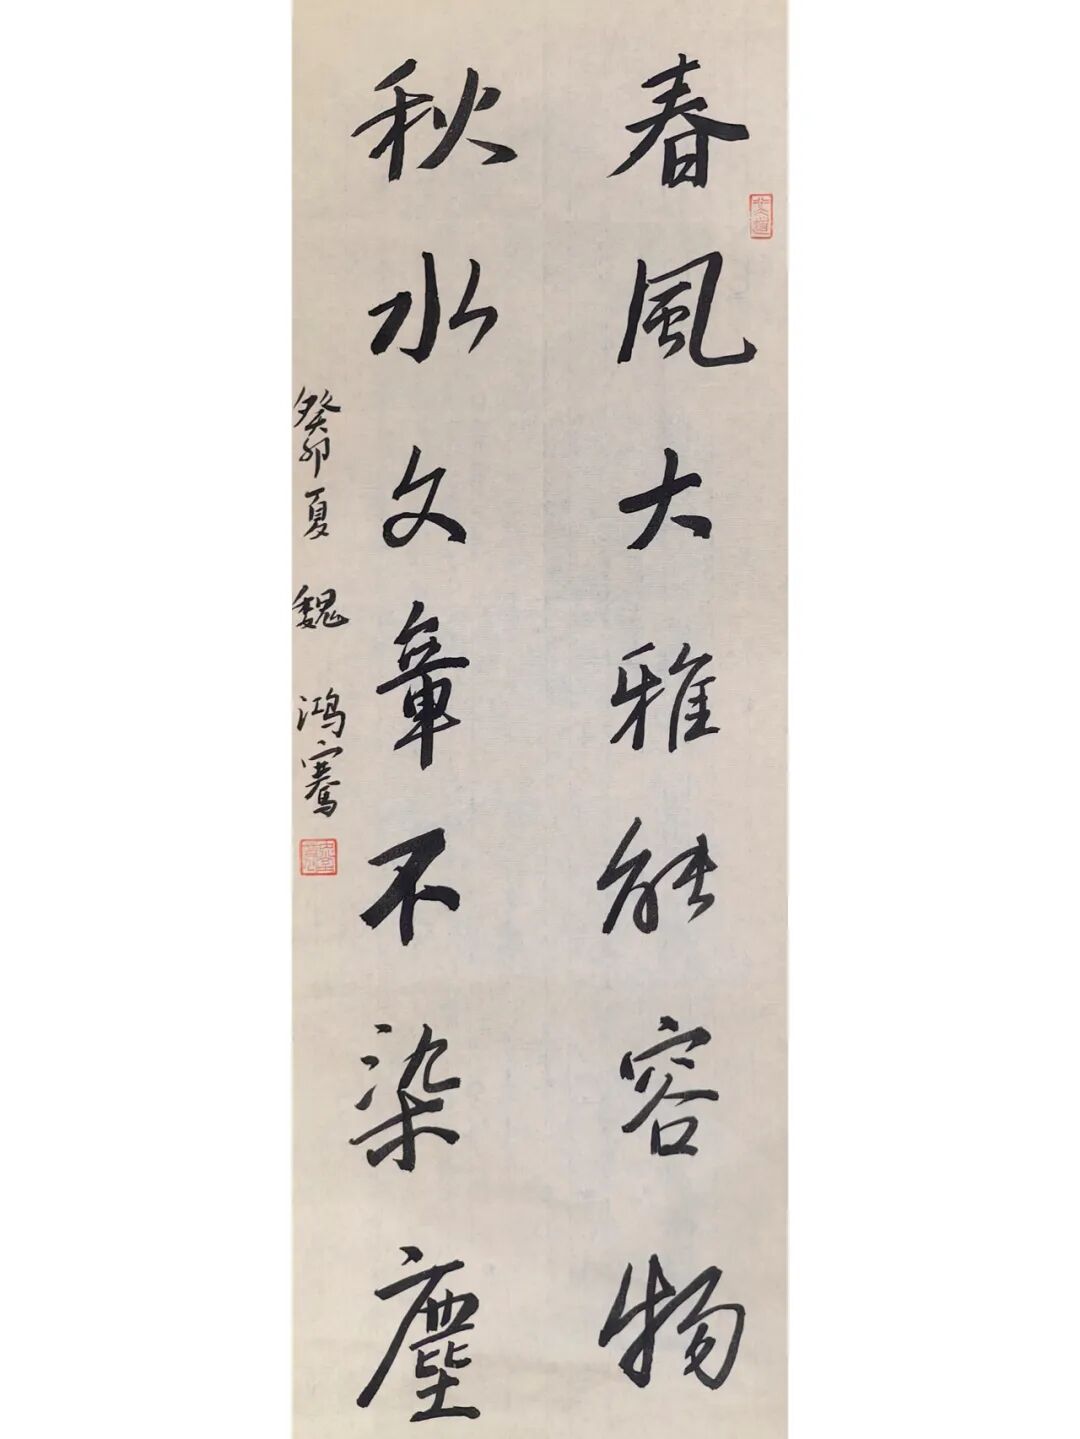 春風大雅能容物
秋水文章不染塵
癸卯夏 魏鴻騫